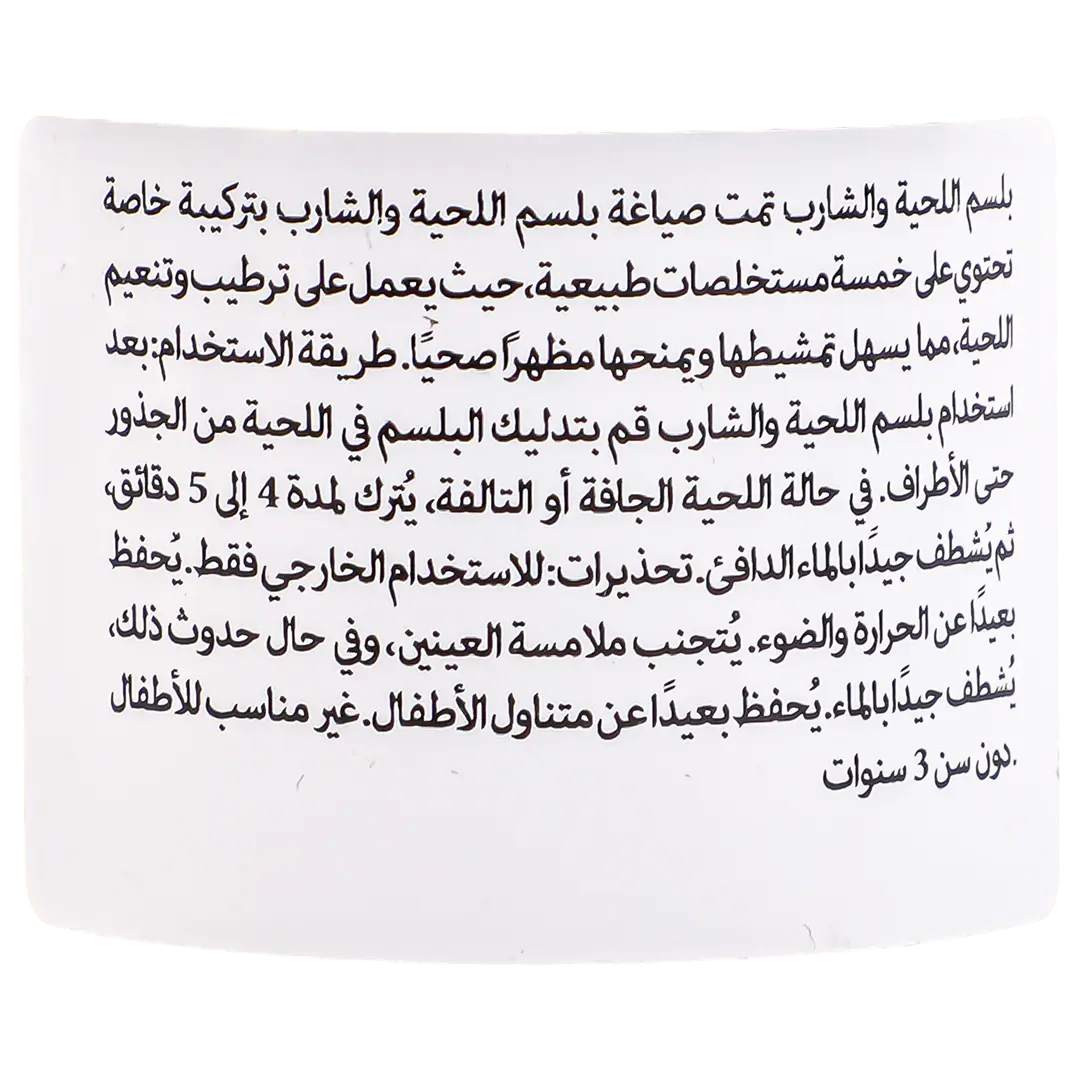 بلسم اللحية والشارب تمت صياغة بلسم اللحية والشارب بتركيبة خاصة
تحتوي على خمسة مستخلصات طبيعية، حيث يعمل على ترطيب وتنعيم
اللحية، مما يسهل تمشيطها ويمنحها مظهرًا صحيًا. طريقة الاستخدام: بعد
استخدام بلسم اللحية والشارب قم بتدليك البلسم في اللحية من الجذور
حتى الأطراف. في حالة اللحية الجافة أو التالفة، يُترك لمدة 4 إلى 5 دقائق،
ثم يُشطف جيدًا بالماء الدافئ. تحذيرات: للاستخدام الخارجي فقط. يُحفظ
بعيدًا عن الحرارة والضوء. يُتجنب ملامسة العينين، وفي حال حدوث ذلك،
يُشطف جيدًا بالماء. يُحفظ بعيدًا عن متناول الأطفال. غير مناسب للأطفال
.دون سن 3 سنوات